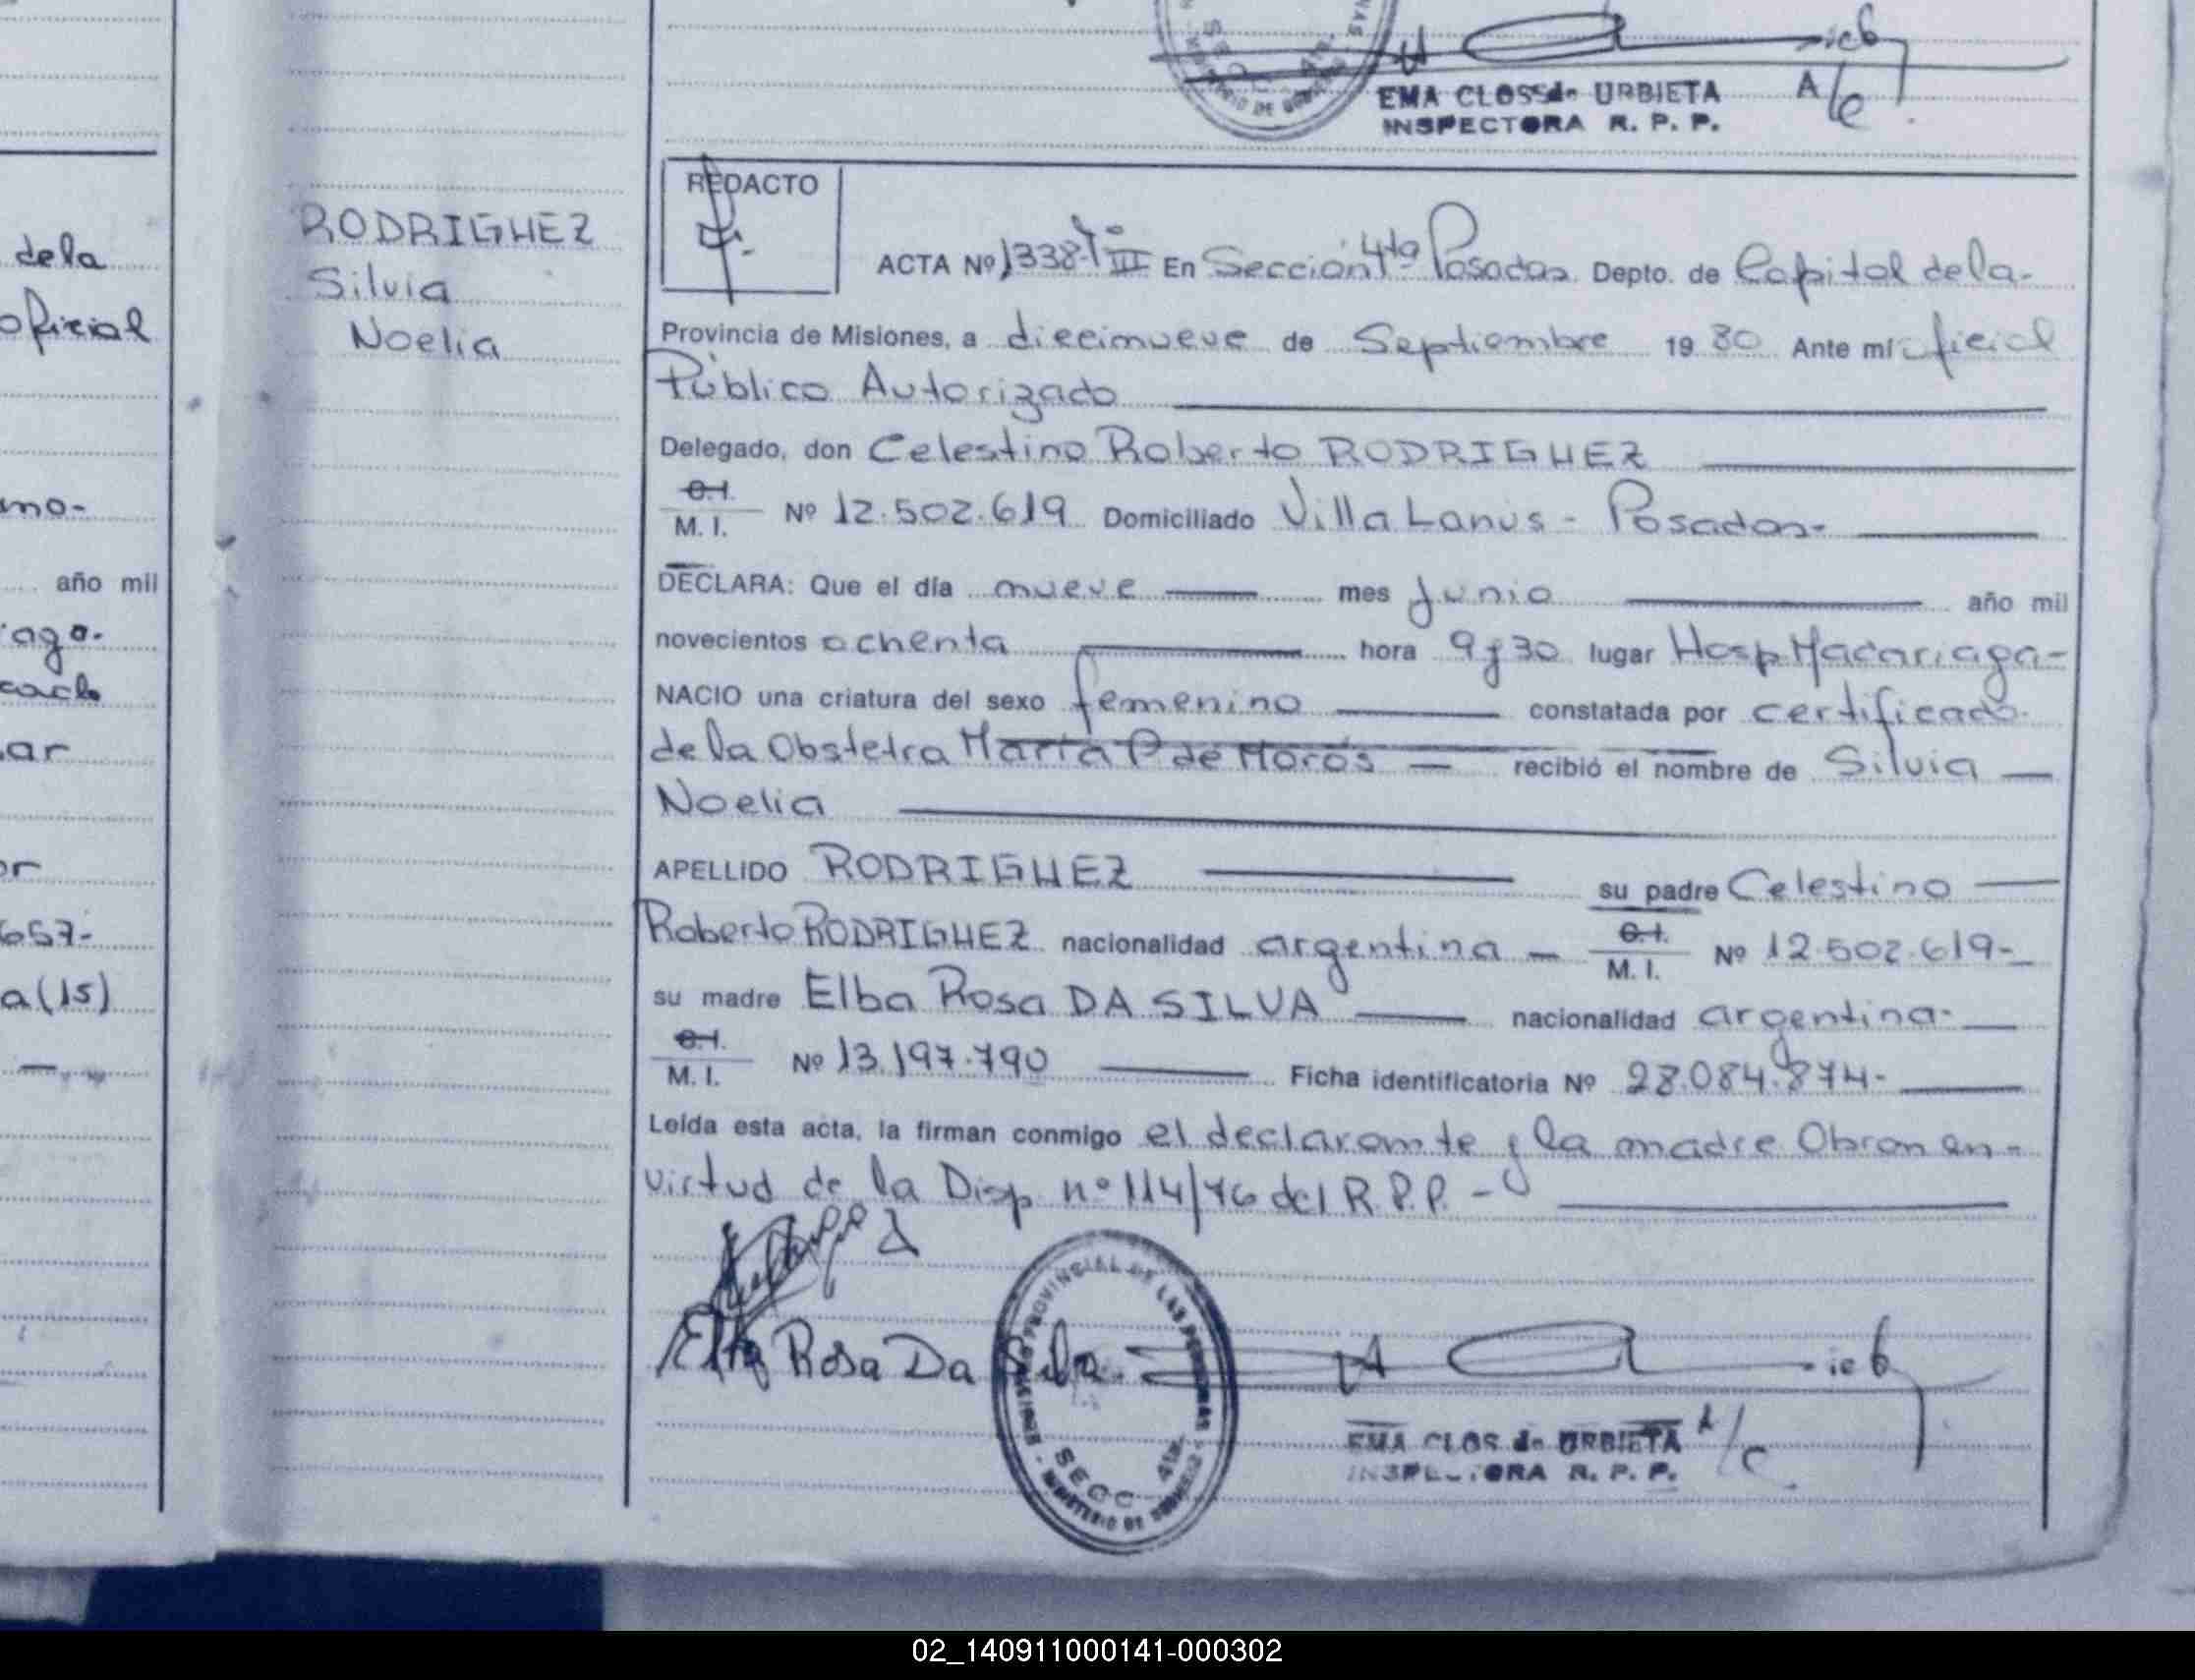 EMA CLOS de URBIETA A/C
INSPECTORA R. P. P.
dela
oficial
año mil
ar
or
657-
a(15)
RODRIGHEZ
Silvia
Noelia
REDACTO
ACTA Nº 1338 Tº III En Sección 4ta Posadas Depto. de Capital de la-
Provincia de Misiones, a diecinueve de Septiembre 19 80 Ante mí oficial
Público Autorizado
Delegado, don Celestino Roberto RODRIGHEZ
C.I. M. I. Nº 12.502.619 Domiciliado Villa Lanus - Posadas-
DECLARA: Que el día nueve mes Junio año mil
novecientos ochenta hora 9 y 30 lugar Hosp Madariaga-
NACIO una criatura del sexo femenino constatada por certificado
de la Obstetra Marta P de Moros recibió el nombre de Silvia
Noelia
APELLIDO RODRIGHEZ su padre Celestino
Roberto RODRIGHEZ nacionalidad argentina C.I. M. I. Nº 12.502.619-
su madre Elba Rosa DA SILVA nacionalidad argentina-
C.I. M. I. Nº 13.197.790 Ficha identificatoria Nº 28.084.874-
Leída esta acta, la firman conmigo el declarante y la madre Obran en-
virtud de la Disp nº 114/76 del R.P.P. -
Elba Rosa Da Silva
PROVINCIAL DE LAS PERSONAS - MINISTERIO DE GOBIERNO
SECC 4ta.
EMA CLOS de URBIETA A/C
INSPECTORA R. P. P.
02_140911000141-000302